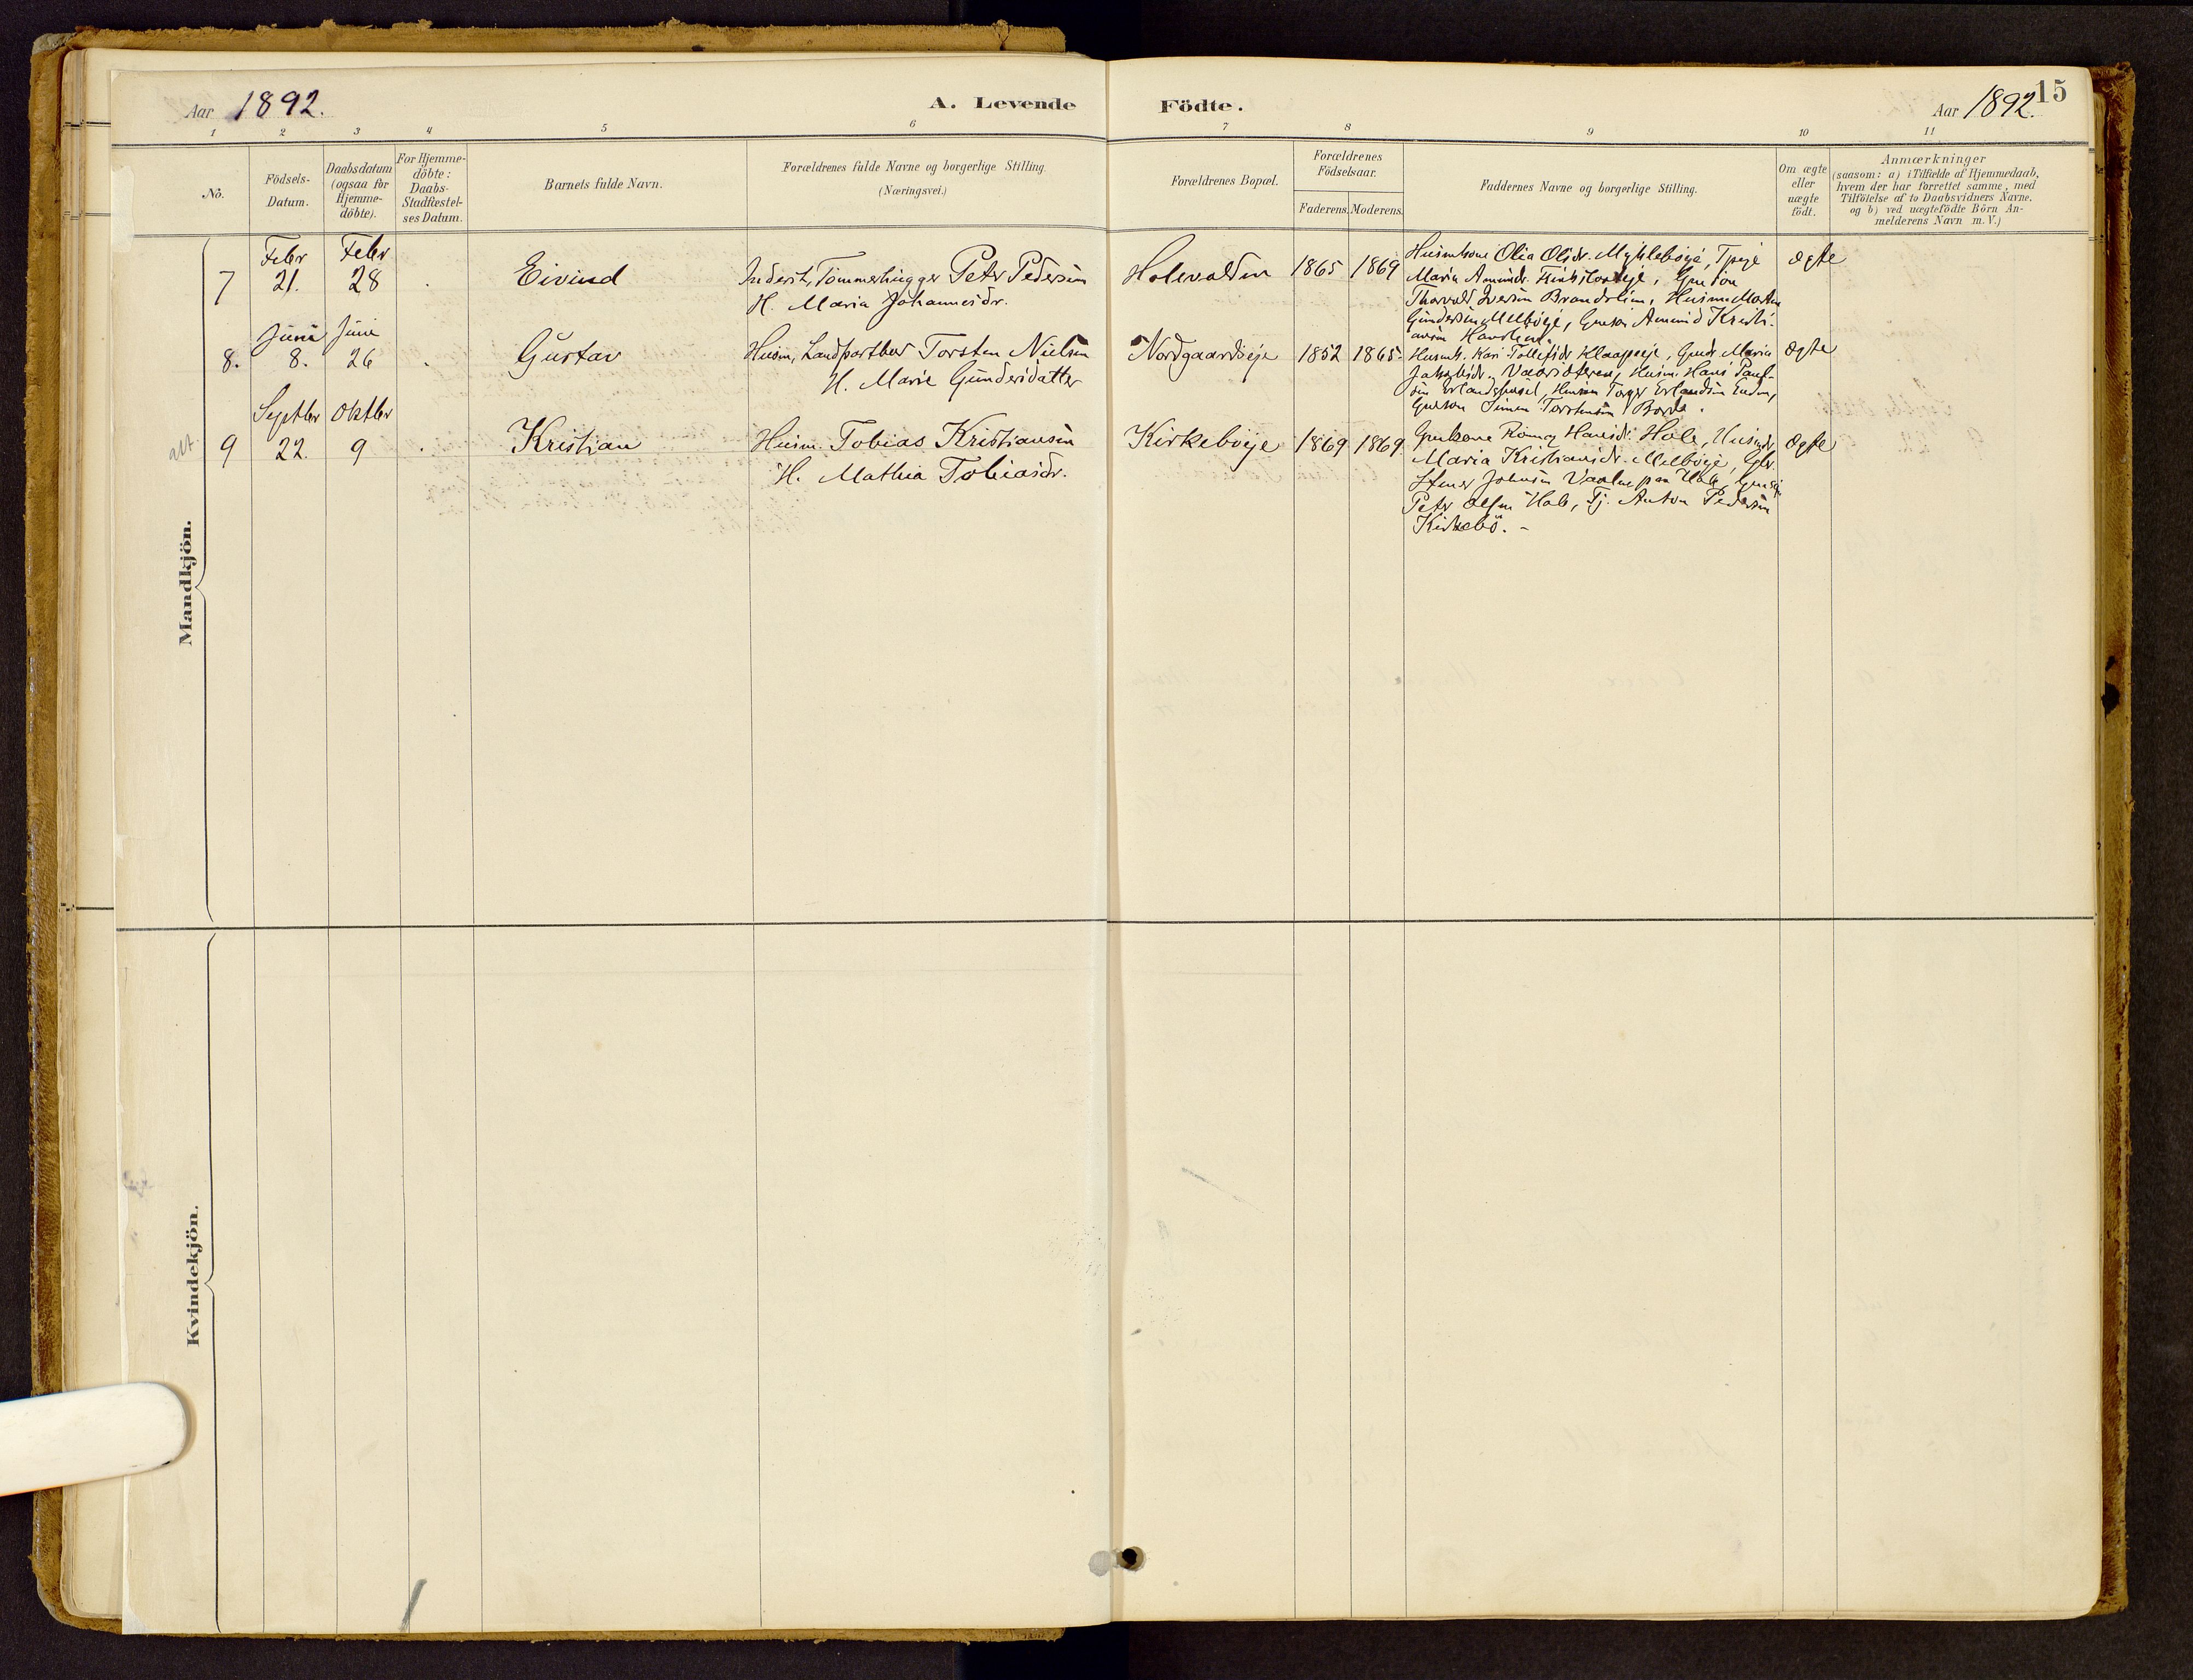 Aar 1892. A. Levende Födte. Aar 1892. 15
1 2 3 4 5 6 7 8 9 10 11
No.
Födsels-
Datum.
Daabsdatum
(ogsaa for
Hjemme-
döbte).
For Hjemme-
döbte:
Daabs-
Stadfæstel-
ses Datum.
Barnets fulde Navn.
Forældrenes fulde Navne og borgerlige Stilling.
(Næringsvei.)
Forældrenes Bopæl.
Forældrenes
Födselsaar.
Faderens. Moderens.
Faddernes Navne og borgerlige Stilling.
Om ægte
eller
uægte
födt.
Anmærkninger
(saasom: a) i Tilfælde af Hjemmedaab,
hvem der har forrettet samme, med
Tilföielse af to Daabsvidners Navne.
og b) ved uægtefödte Börn An-
melderens Navn m.V.)
Mandkjön.
Febr Febr
7 21. 28 Eivind
Inderst, Tömmerhugger Peter Pedersen
H. Maria Johannesdr.
Holevolden 1865 1869
Huusmkone Olia Olsdr. Myklebøeje, Tjpige
Maria Amundr.
Thorvald Iversen Brandslien, Husm. Martin
Gundersen Melbøeje, Gmson Amund Kristi-
ansen
ægte
Juni Juni
8. 8. 26 Gustav
Husm, Landpostbud Torsten Nielsen
H. Marie Gundersdatter
Nordgaardseje 1852 1865.
Husmk. Kari Tollefsdr Klaappeje, Gmdr. Maria
Jakobsdr. Husm. Hans Paul-
sen Husm Torger Erlandsen
Gmson Simen Torstensen
ægte
Septbr Oktbr
alt 9 22. 9 Kristian
Husm. Tobias Kristiansen
H. Mathea Tobiasdr.
Kirkebøeje 1869 1869.
Gmkone Rönnog Hansdr. Hole, Husmdr
Maria Kristiansdr. Melbøeje,
Stener Johnsen paa Hole, Gmson
Peter Olsen Hole, Tj. Anton Pedersen
Kirkebö. –
ægte
Kvindekjön.